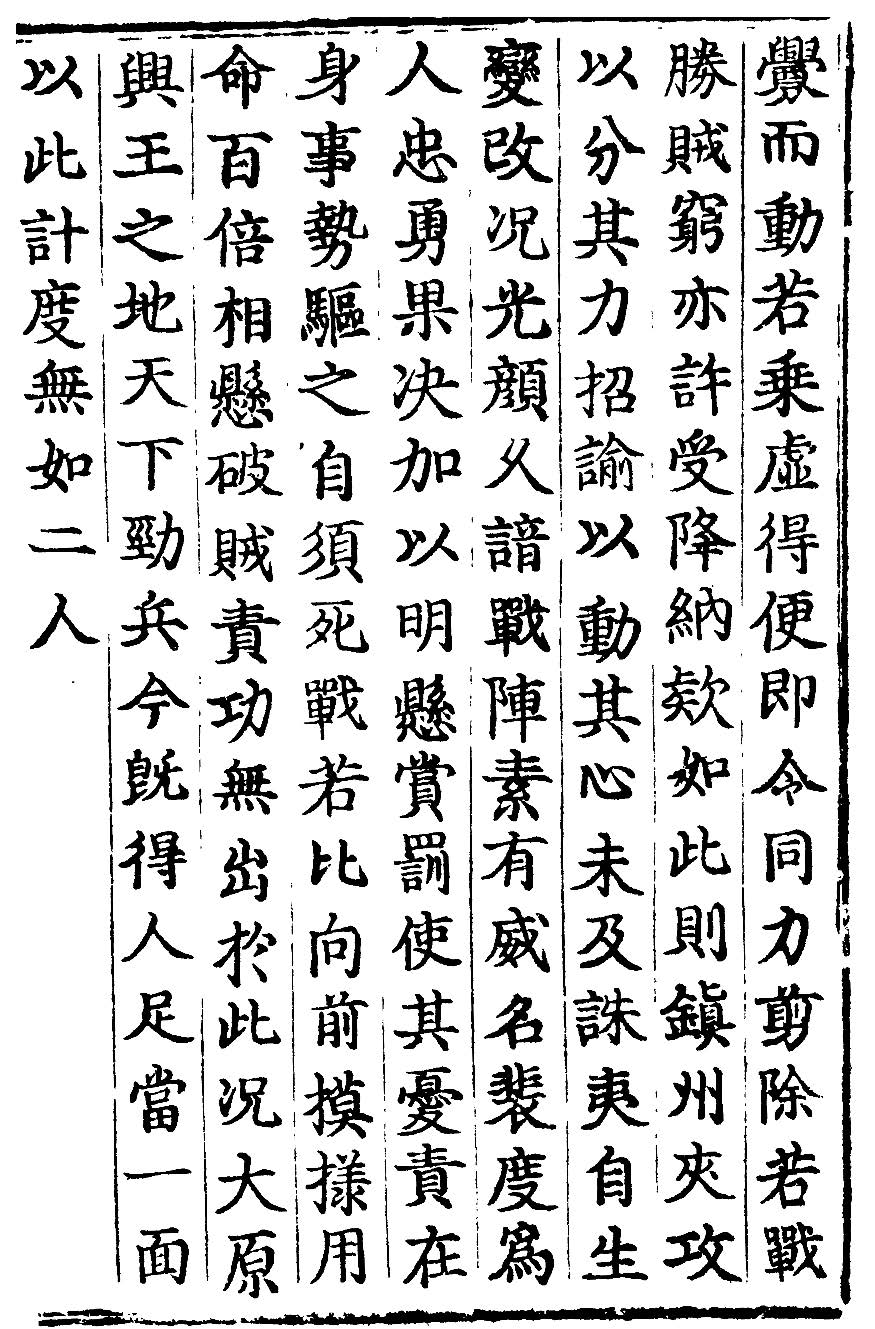 釁而動若乗虛得便即令同力剪除若戰
勝賊窮亦許受降納欵如此則鎭州夾攻
以分其力招諭以動其心未及誅夷自生
變改况光顔乆諳戰陣素有威名裴度爲
人忠勇果决加以明懸賞罰使其憂責在
身事勢驅之自須死戰若比向前摸㨾用
命百倍相懸破賊責功無出於此况大原
興王之地天下勁兵今旣得人足當一面
以此計度無如二人